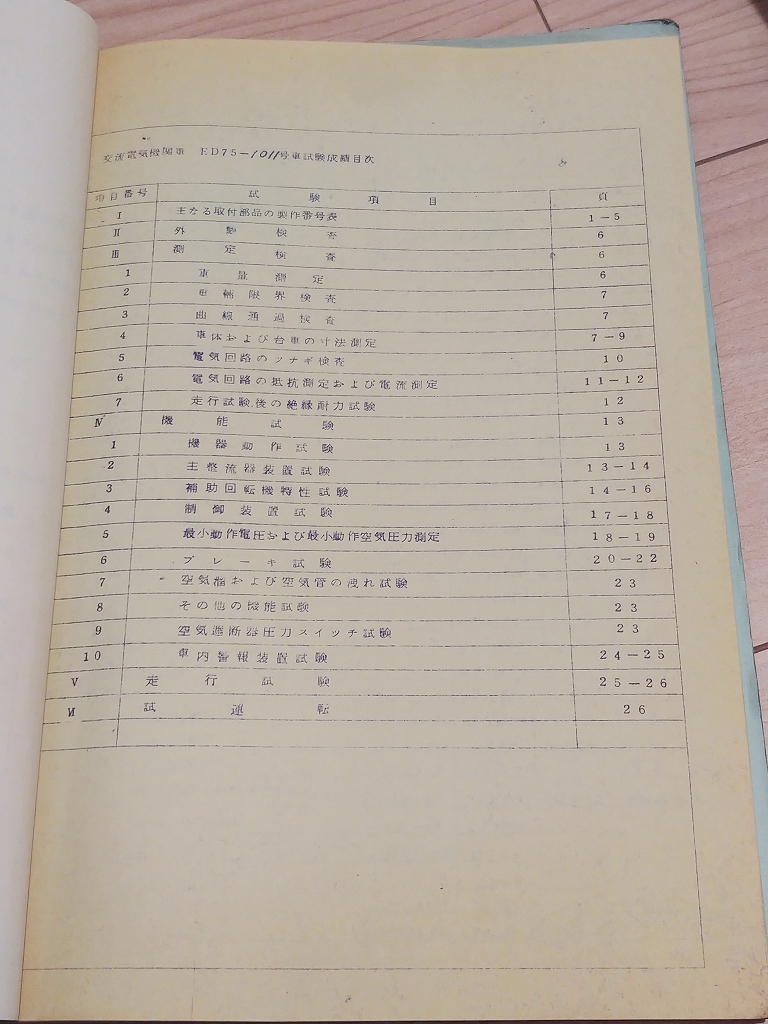 交流電気機関車 ED75-1011号車試験成績目次
項目番号 試験項目 頁
Ⅰ 主なる取付部品の製作番号表 1-5
Ⅱ 外観検査 6
Ⅲ 測定検査 6
1 重量測定 6
2 車輛限界検査 7
3 曲線通過検査 7
4 車体および台車の寸法測定 7-9
5 電気回路のツナギ検査 10
6 電気回路の抵抗測定および電流測定 11-12
7 走行試験後の絶縁耐力試験 12
Ⅳ 機能試験 13
1 機器動作試験 13
2 主整流器装置試験 13-14
3 補助回転機特性試験 14-16
4 制御装置試験 17-18
5 最小動作電圧および最小動作空気圧力測定 18-19
6 ブレーキ試験 20-22
7 空気溜および空気管の洩れ試験 23
8 その他の機能試験 23
9 空気遮断器圧力スイッチ試験 23
10 車内警報装置試験 24-25
Ⅴ 走行試験 25-26
Ⅵ 試運転 26